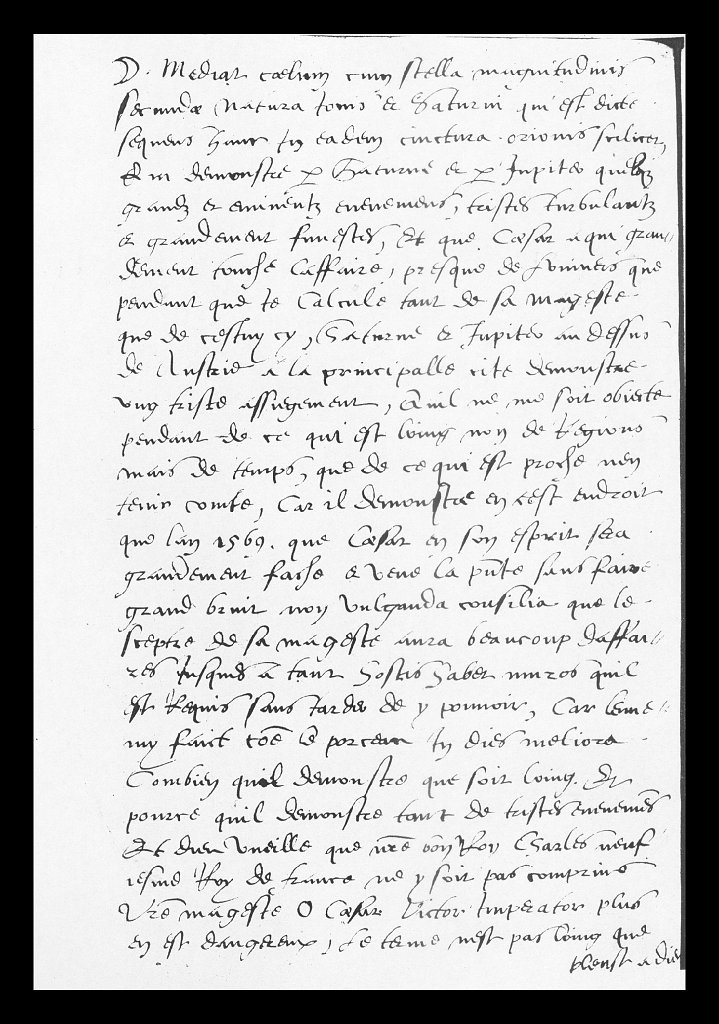 D. Mediat cœlum cum stella magnitudinis
secundæ Natura Jovis & Saturni qui est dicte
sequens hanc In eadem cinctura orionis scilicet,
& m demonstre p Saturne & p Jupiter quelqz
grandz & eminentz evenemens, tristes turbulantz
& grandement funestes, Et que Cæsar a qui gran-
dement touche Laffaire, presque de que
pendant que Je Calcule tant de sa mageste
que de cestuy cy, Saturne & Jupiter au dessus
de Austrie a la principalle cite demonstre
ung triste assiegement, Quil ne me soit obiecte
pendant de ce qui est loing non de Regions
mais de temps, que de ce qui est proche nen
tenir comte, Car il demonstre en cest endroit
que lan 1569. que Cæsar en son esprit sera
grandement fache & vene la pnte sans faire
grand bruit non vulganda consilia que le
sceptre de sa mageste aura beaucoup daffai-
res Jusques a tant hostis habet muros quil
est Requis sans tarder de y pourvoir, Car lenne-
my faict coē le porceau In dies meliora
Combien quil demonstre que soit loing. Et
pource quil demonstre tant de tristes evenemēs
Et dieu vueille que nrē bon Roy Charles neuf
iesme Roy de france ne y soit pas comprins
Vrē mageste O Cæsar Victor Imperator plus
en est dangereux, Le terme nest pas loing que
pleust a dieu